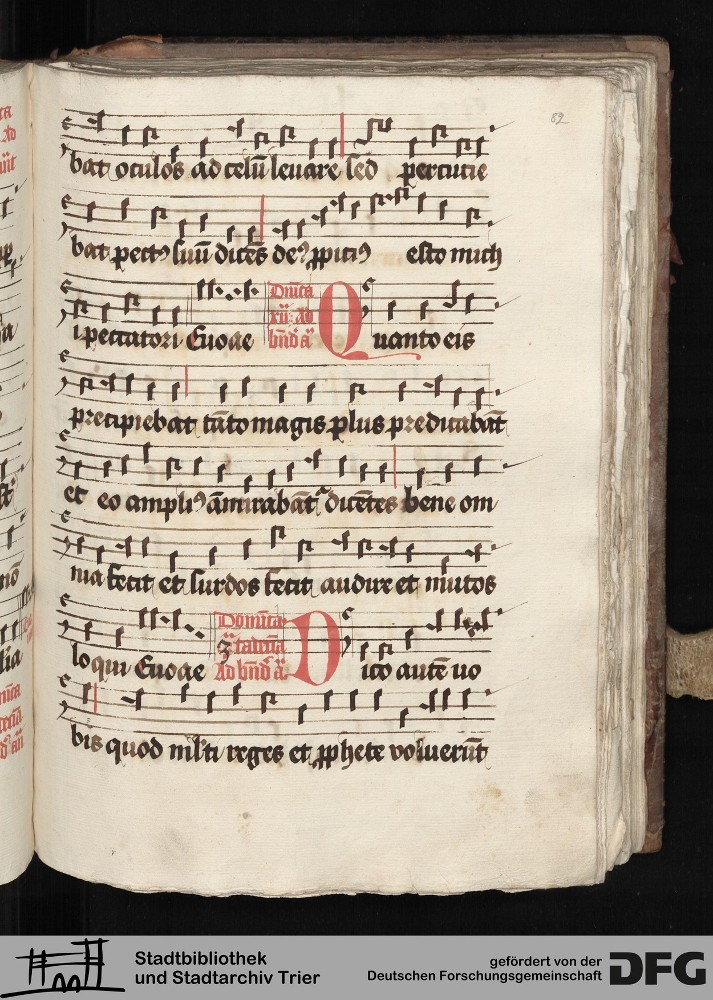 89
bat oculos ad celū levare sed percucie
bat pectꝰ suū dicēs deꝰ ꝓpiciꝰ esto mich
i peccatori Euoae Dnīca xii Ad bn̄d añ Quanto eis
precipiebat tāto magis plus predicabāt
et eo ampliꝰ āmirabāt dicētes bene om
nia fecit et surdos fecit audire et mutos
loqui Euoae Domīca tredecīa Ad bn̄d añ Dico autē uo
bis quod ml̓ti reges et ꝓphete voluerūt
Stadtbibliothek
und Stadtarchiv Trier
gefördert von der
Deutschen Forschungsgemeinschaft
DFG